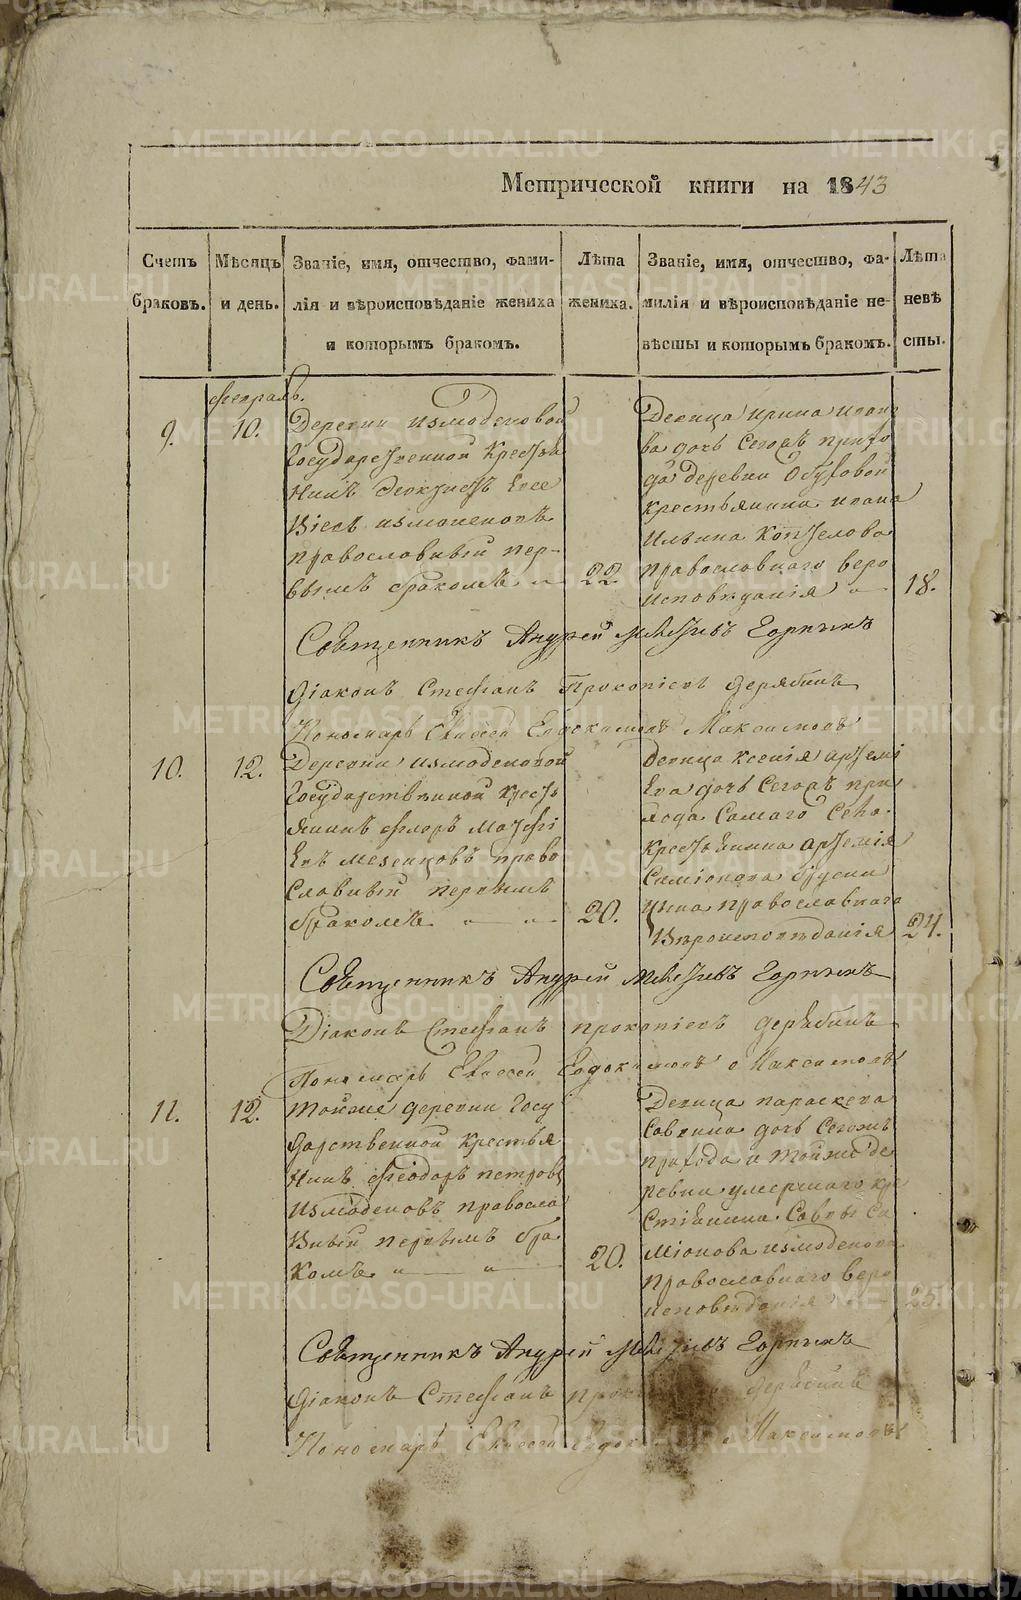 Метрической книги на 1843
Счетъ браковъ.
Мѣсяцъ и день.
Званіе, имя, отчество, фами-
лія и вѣроисповѣданіе жениха
и которымъ бракомъ.
Лѣта жениха.
Званіе, имя, отчество, фа-
милія и вѣроисповѣданіе не-
вѣсты и которымъ бракомъ.
Лѣта невѣ
сты.
Февраль.
9.
10.
Деревни Измоденовой
Государственной Крестья
нинъ Феоктистъ Елес
віевъ Измоденовъ
православный пер-
вымъ бракомъ
22
Девица Ирина Ивано
ва дочь Сегожъ прихо
да деревни
крестьянина Ивана
Ильина
православнаго веро
исповѣданія
18.
Священникъ Андрей Горныхъ
Діаконъ Стефанъ Прокопіевъ Дерябинъ
Пономарь Елисей Евдокимовъ Максимовъ
10.
12.
Деревни Измоденовой
Государственной Кресть
янинъ Флоръ Матфі
евъ Мезенцовъ право
славный первымъ
бракомъ
20.
Девица Ксенія Артемі
ева дочь Сегожъ при
хода Самаго Села
Крестьянина Артемія
Симіонова Брусни
цына православнаго
Вѣроисповѣданія
24.
Священникъ Андрей Горныхъ
Діаконъ Стефанъ Прокопіевъ Дерябинъ
Пономарь Елисей Евдокимовъ Максимовъ
11.
12.
Тойже деревни Госу
дарственной крестья
нинъ Феодоръ Петровъ
Измоденовъ правосла
вный первымъ бра
комъ
20.
Девица Параскева
Саввина дочь Сегожъ
прихода и тойже де
ревни умершаго кре
стіянина Саввы Си
міонова Измоденова
православнаго веро
исповѣданія
25.
Священникъ Андрей Горныхъ
Діаконъ Стефанъ Дерябинъ
Пономарь Елисей Максимовъ
METRIKI.GASO-URAL.RU